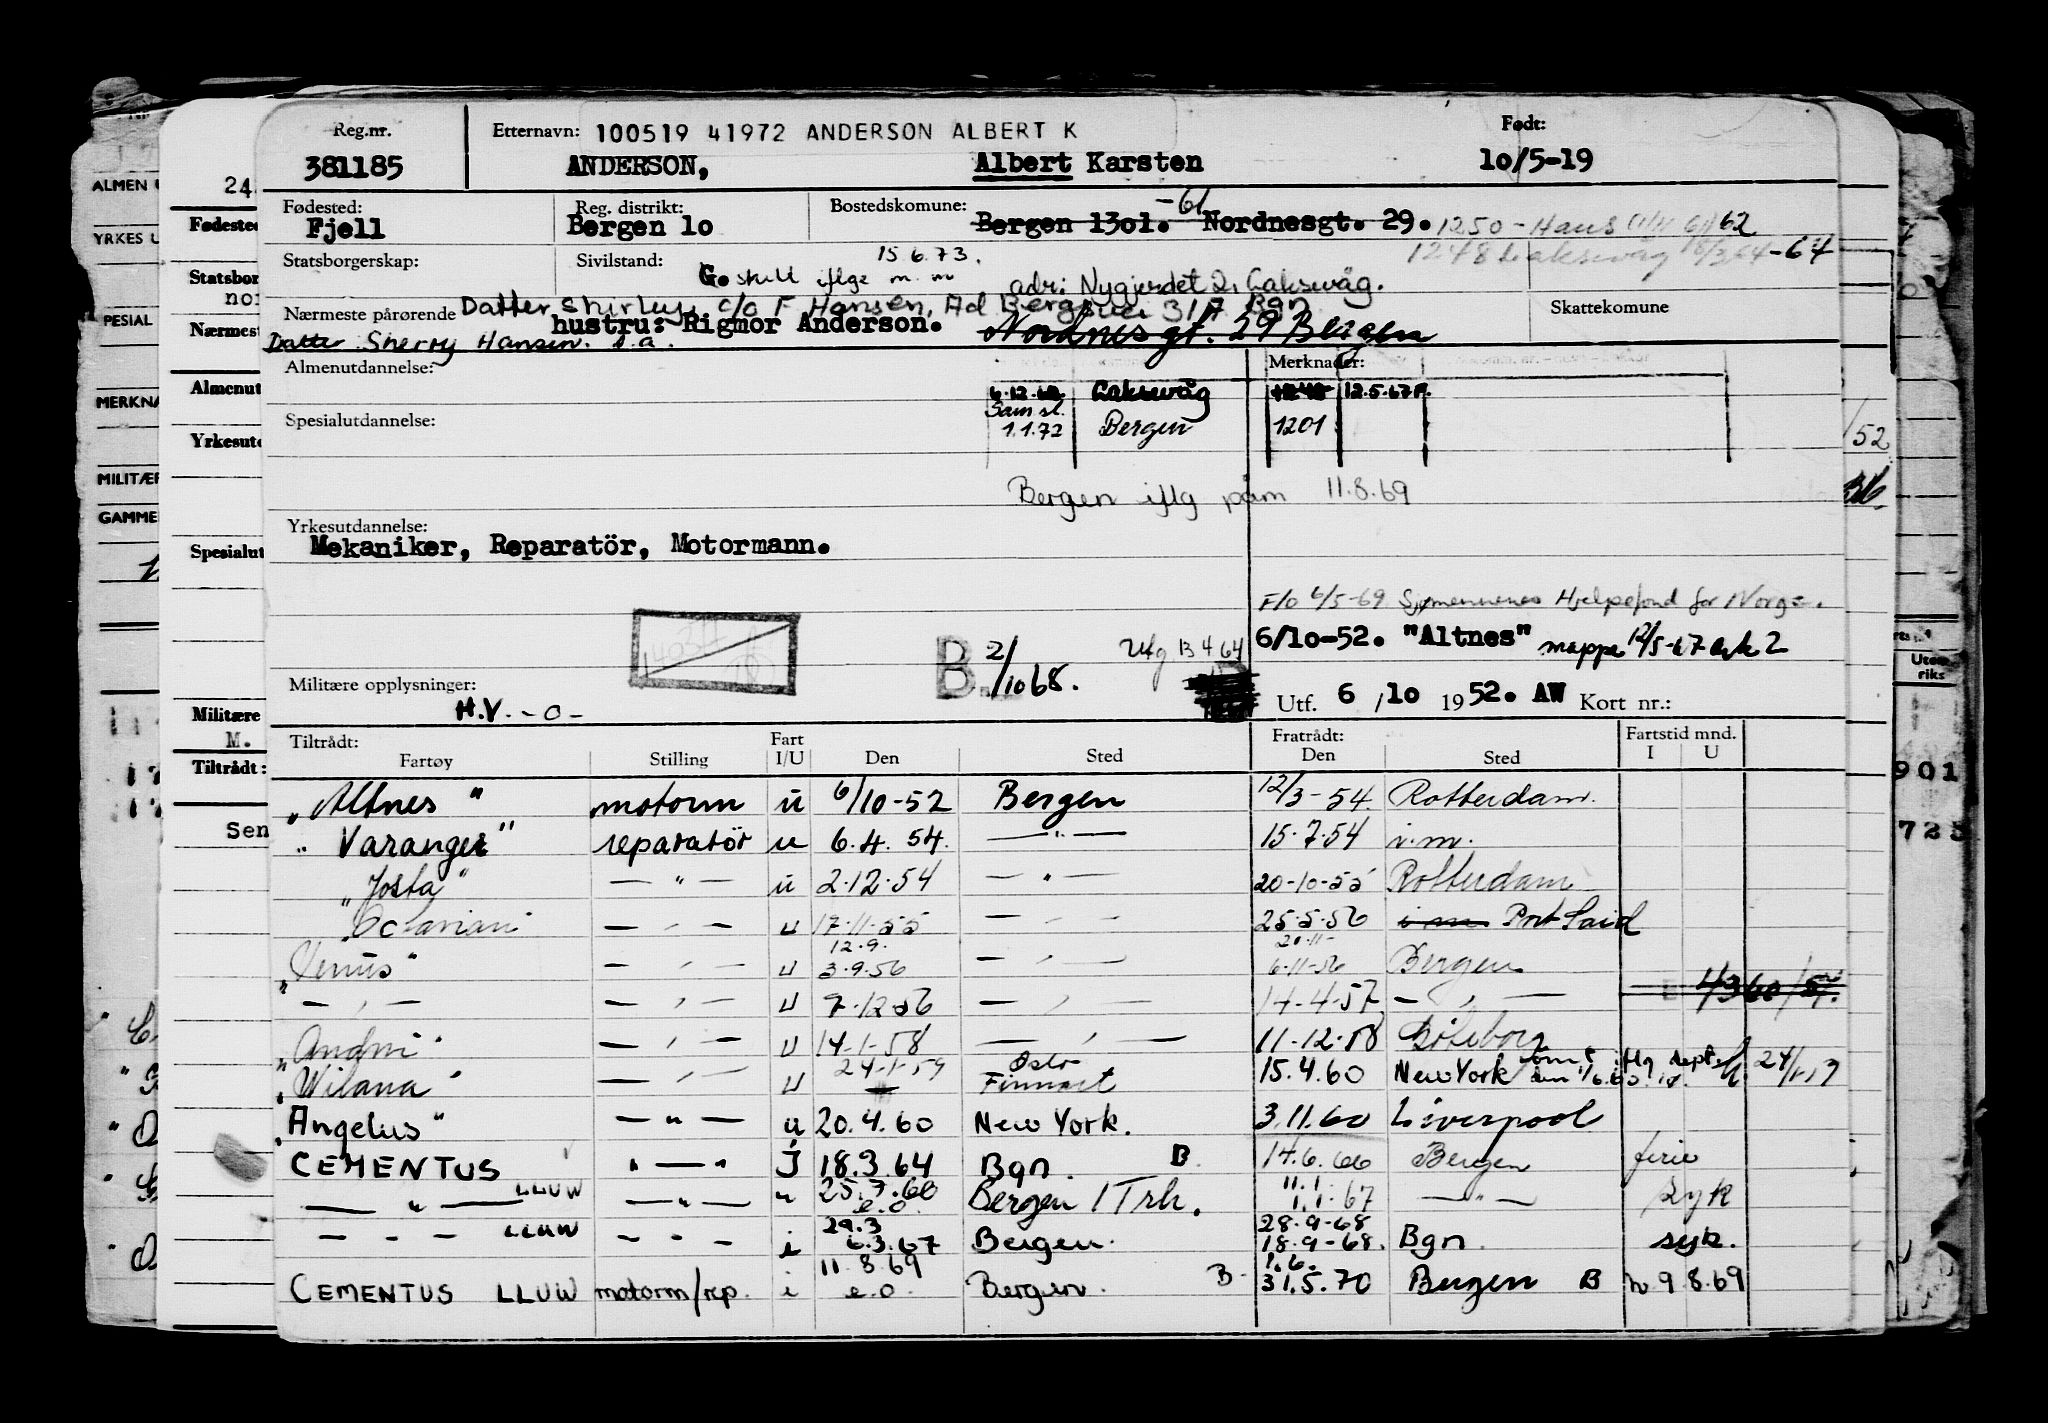 Reg.nr. Etternavn: 100519 41972 ANDERSON ALBERT K Født:
381185 ANDERSON, Albert Karsten 10/5-19
Fødested: Reg. distrikt: Bostedskommune: -61
Fjell Bergen 10 Bergen 1301. Nordnesgt. 29. 1250 - Haus 62
Statsborgerskap: Sivilstand: 15.6.73. 1248 Laksevåg 18/3 64 -64
G. skilt iflge m.m adr: Nygjerdet 2, Laksevåg.
Nærmeste pårørende Datter Shirley, c/o F Hansen, Ad Bergsvei 31A Bgn Skattekomune
hustru: Rigmor Anderson. Nordnesgt. 29 Bergen
Datter Sherry Hansen. s.a.
Almenutdannelse: Merknader:
6.12.62 Laksevåg 12.5.67
Sam sl.
Spesialutdannelse: 1.1.72 Bergen 1201
Bergen iflg påm 11.8.69
Yrkesutdannelse:
Mekaniker, Reparatör, Motormann.
F/o 6/5-69 Sjømennenes Hjelpefond for Norge.
B. 2/10 68. Utg B 4 64 6/10-52. "Altnes" mappe 12/5-67 ark 2
Militære opplysninger:
H.V. -o- Utf. 6 /10 1952. AW Kort nr.:
Tiltrådt: Fart Fratrådt: Fartstid mnd.
Fartøy Stilling I/U Den Sted Den Sted I U
"Altnes" motorm u 6/10-52 Bergen 12/3-54. Rotterdam.
"Varanger" reparatör u 6.4.54. — " — 15.7.54 i.m.
"Josta" — " — u 2.12.54 — " — 20-10-55 Rotterdam
"Octavian" — " — u 17.11.55 — " — 25.5.56 i m Port Said
12.9. 20.11-
"Venus" — " — u 3.9.56 — " — 6.11-56 Bergen
— " — — " — u 7.12.56 — " — 14-4-57. — " — 4/3 60
"Andwi" — " — u 14-1-58 — " — 11-12-58 Göteborg
24-1-59 Oslo
"Wilana" — " — u Finnart 15.4.60 New York
"Angelus" — " — u 20.4.60 New York. 3.11.60 Liverpool
CEMENTUS " — " J 18.3.64 Bgn. B. 14.6.66 Bergen ferie
LLUW 25.7.66 11.1.
— " — — " — " e.o. Bergen / Trh. 1.1.67 — " — Syk
LLUW 29.3 28.9-68
— " — — " — i 6.3.67 Bergen. 18.9-68. Bgn. syk.
11.8.69 1.6.
CEMENTUS LLUW motorm/rep. i e.o. Bergen. B. 31.5.70 Bergen B h. 9.8.69
24
ALMEN
Fødested
YRKES U
Statsbor
nor
PESIAL
Nærmest
Almenut
MERKNA
Yrkesutd
52
MILITÆR
GAMME
Spesialut
Utenriks
Militære
M.
Tiltrådt:
901
Sen
725